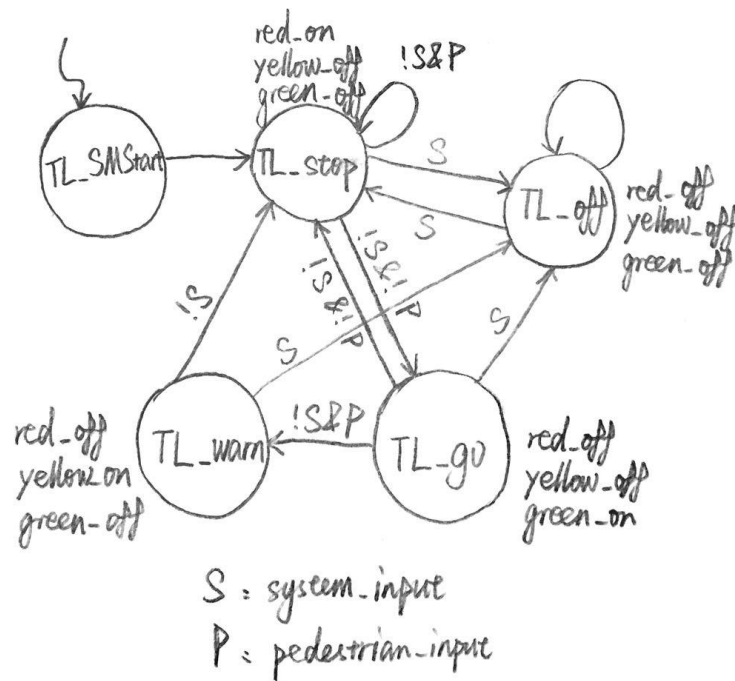 red_on
yellow_off
green_off
!S&P
TL_SMStart
TL_stop
S
TL_off
red_off
yellow_off
green_off
S
!S&!P
!S&!P
!S
S
S
TL_warn
!S&P
TL_go
red_off
yellow_on
green_off
red_off
yellow_off
green_on
S : system_input
P : pedestrian_input